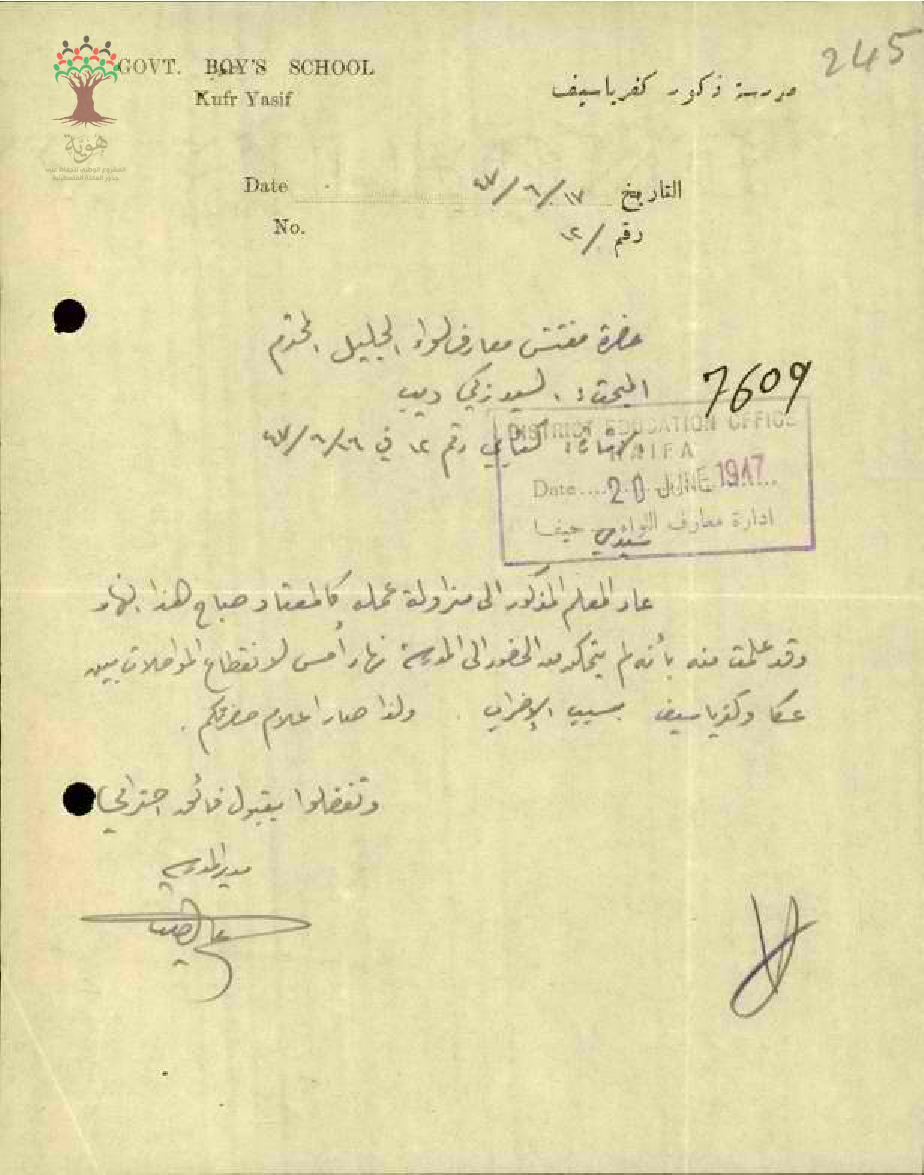 245
GOVT. BOY'S SCHOOL
Kufr Yasif
مدرسة ذكور كفرياسيف
هوية
Date التاريخ ١٧/٦/٤٧
No. رقم /١٢
حضرة مفتش معارف لواء الجليل المحترم
المبحث: السيد زكي ديب
7609
DISTRICT EDUCATION OFFICE
HAIFA
Date.... 20 JUNE 1947
ادارة معارف اللواء – حيفا
رقم ١٢ في ١٦/٦/٤٧
سيدي
عاد المعلم المذكور الى مزاولة عمله كالمعتاد صباح هذا النهار
وقد علمت منه بأنه لم يتمكن من الحضور الى المدرسة نهار أمس لانقطاع المواصلات بين
عكا وكفرياسيف بسبب الإضراب. ولذا صار اعلام حضرتكم.
وتفضلوا بقبول فائق احترامي
مدير المدرسة